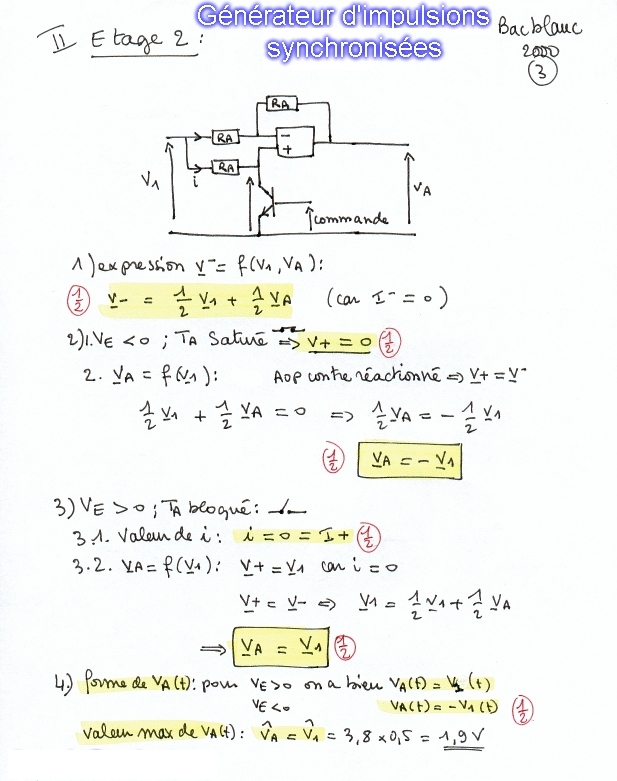 Générateur d'impulsions
synchronisées
Bac blanc
2000
3
II Etage 2 :
RA
RA
-
+
RA
i
V1
VA
commande
1) expression V- = f(V1, VA) :
1/2 V- = 1/2 V1 + 1/2 VA (car I- = 0)
2) 1. VE < 0 ; TA Saturé ⇒ V+ = 0 1/2
2. VA = f(V1) : AOP contre réactionné ⇒ V+ = V-
1/2 V1 + 1/2 VA = 0 ⇒ 1/2 VA = - 1/2 V1
1/2 VA = - V1
3) VE > 0 ; TA bloqué :
3.1. Valeur de i : i = 0 = I+ 1/2
3.2. VA = f(V1) : V+ = V1 car i = 0
V+ = V- ⇒ V1 = 1/2 V1 + 1/2 VA
⇒ VA = V1 1/2
4.) forme de VA(t) : pour VE > 0 on a bien VA(t) = V1(t)
VE < 0 VA(t) = - V1(t) 1/2
Valeur max de VA(t) : V̂A = V̂1 = 3,8 × 0,5 = 1,9 V